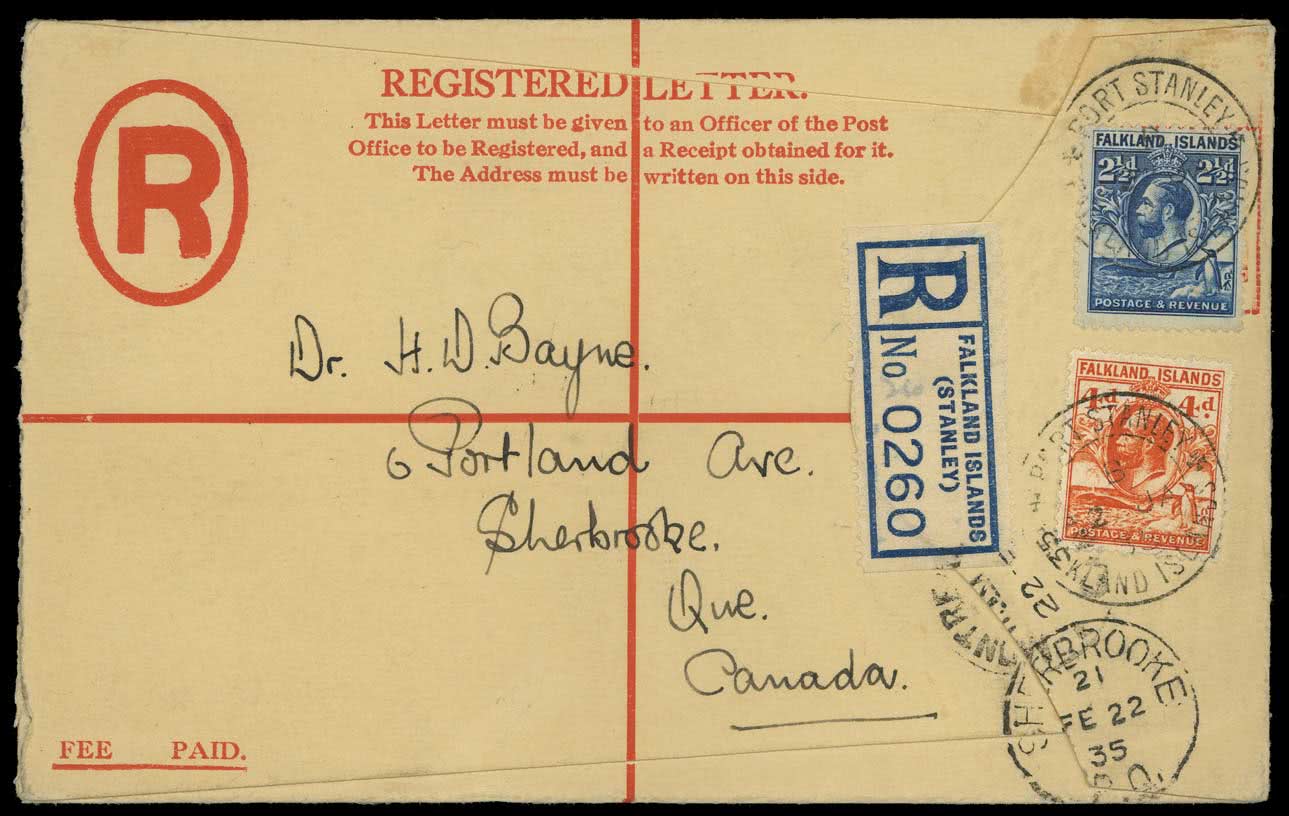 REGISTERED LETTER.
This Letter must be given to an Officer of the Post
Office to be Registered, and a Receipt obtained for it.
The Address must be written on this side.
R
PORT STANLEY
FALKLAND ISLANDS
2½d 2½d
POSTAGE & REVENUE
R
No 0260
FALKLAND ISLANDS
(STANLEY)
Dr. H. D. Bayne.
6 Portland Ave.
Sherbrooke.
Que.
Canada.
FALKLAND ISLANDS
4d. 4d.
POSTAGE & REVENUE
PORT STANLEY
FALKLAND ISL
22
35
SHERBROOKE
21
FE 22
35
FEE PAID.